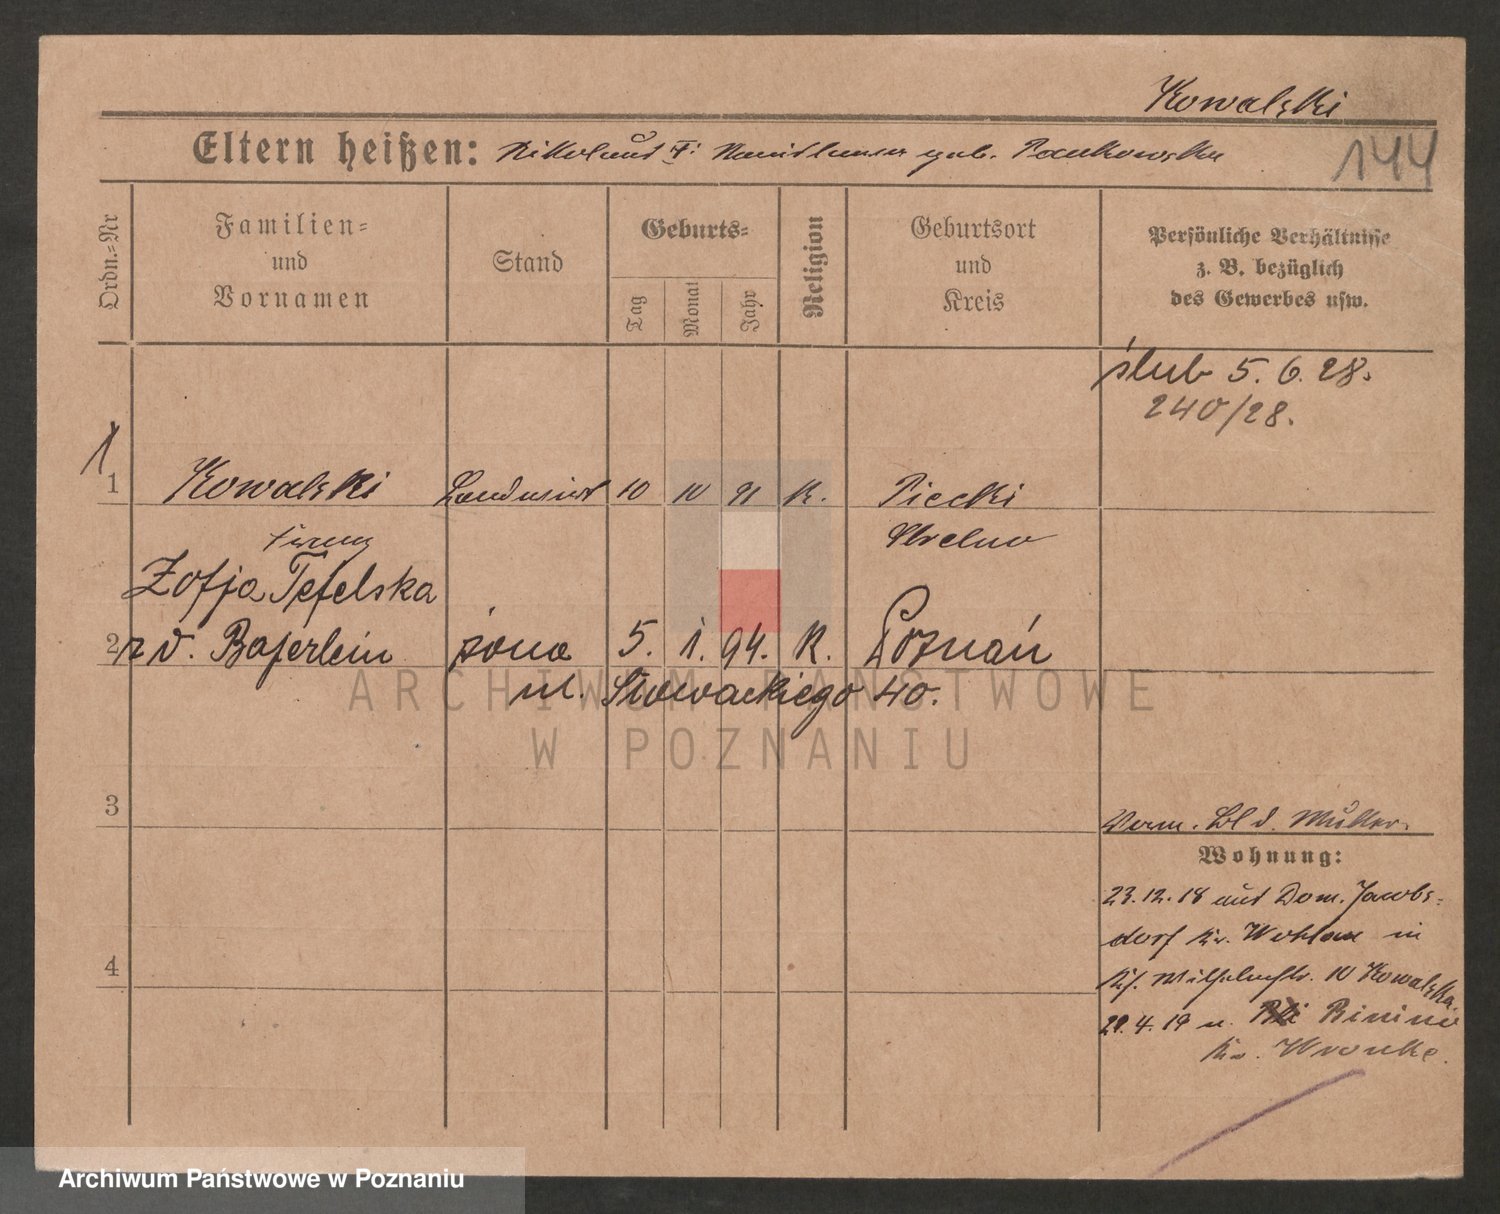 Kowalski
Eltern heißen: Nikolaus u. Stanislawa geb. Pankowska
144
Ordn.-Nr
Familien-
und
Vornamen
Stand
Geburts-
Tag
Monat
Jahr
Religion
Geburtsort
und
Kreis
Persönliche Verhältnisse
z. B. bezüglich
des Gewerbes usw.
ślub 5. 6. 28.
240/28.
1
1 Kowalski Landwirt 10 10 91 K. Piecki
Strelno
Zofja Tefelska
2 z d. Bajerlein żona 5. 1. 94. K. Poznań
ul. Słowackiego 40.
ARCHIWUM PAŃSTWOWE
W POZNANIU
3
Verm. bl d. Mutter.
Wohnung:
23.12.18 aus Dom. Jacobs-
dorf Kr. Wohlau in
hf. Wilhelmstr. 10 Kowalska.
4
29.4.19 n. Binino
Kr. Wronke.
Archiwum Państwowe w Poznaniu